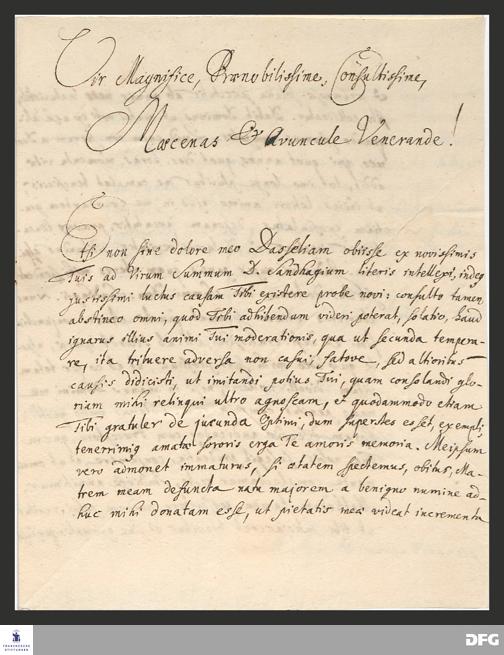 Vir Magnifice, Prænobilissime, Consultissime,
Mæcenas & Avuncule Venerande!
Etsi non sine dolore meo Dasseliam obiisse ex novissimis
Tuis ad Virum Summum D. Sandhagium literis intellexi, indeq
justissimi luctus causam Tibi existere probe novi: consulto tamen
abstineo omni, quod Tibi adhibendum videri poterat, solatio, haud
ignarus illius animi Tui moderationis, qua ut secunda tempera-
re, ita tribuere adversa non casui, fatove, sed altioribus
causis didicisti, ut imitandi potius Tui, quam consolandi glo-
riam mihi relinqui ultro agnoscam, et quodammodo etiam
Tibi gratuler de jucunda optimi, dum superstes esset, exempli,
tenerrimiq amatæ sororis erga Te amoris memoria. Meipsum
vero admonet immaturus, si ætatem spectemus, obitus, Ma-
trem meam defuncta natu majorem a benigno numine ad-
huc mihi donatam esse, ut pietatis meæ videat incrementa
FRANCKESCHE
STIFTUNGEN
DFG